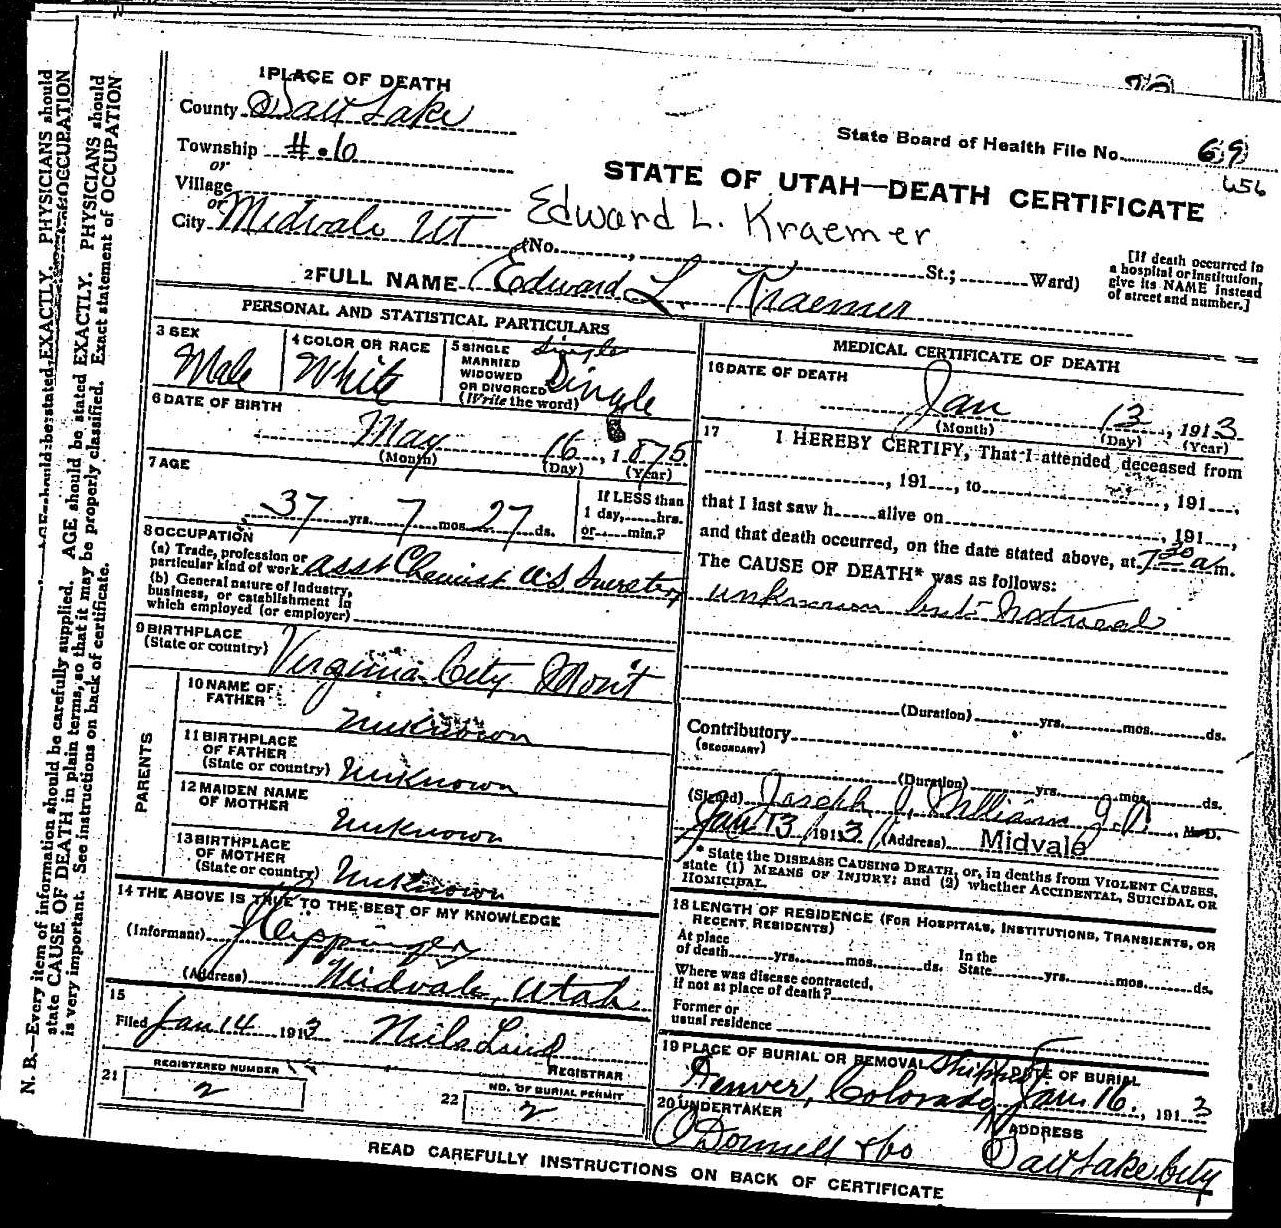 N. B.—Every item of information should be carefully supplied. AGE should be stated EXACTLY. PHYSICIANS should
state CAUSE OF DEATH in plain terms, so that it may be properly classified. Exact statement of OCCUPATION
is very important. See instructions on back of certificate.
1 PLACE OF DEATH
County Salt Lake
Township #.6
or
Village
or
City Midvale Ut
State Board of Health File No. 69
656
STATE OF UTAH—DEATH CERTIFICATE
Edward L. Kraemer
(No. , St.; Ward)
[If death occurred in
a hospital or institution,
give its NAME instead
of street and number.]
2 FULL NAME Edward L. Kraemer
PERSONAL AND STATISTICAL PARTICULARS
3 SEX
Male
4 COLOR OR RACE
White
5 SINGLE
MARRIED
WIDOWED
OR DIVORCED
(Write the word)
Single
Single
6 DATE OF BIRTH
May 16, 1875
(Month) (Day) (Year)
7 AGE
37 yrs. 7 mos. 27 ds.
If LESS than
1 day, hrs.
or min.?
8 OCCUPATION
(a) Trade, profession or
particular kind of work asst Chemist U.S. Smelter
(b) General nature of Industry,
business, or establishment in
which employed (or employer)
9 BIRTHPLACE
(State or country) Virginia City Mont
PARENTS
10 NAME OF
FATHER Unknown
11 BIRTHPLACE
OF FATHER
(State or country) Unknown
12 MAIDEN NAME
OF MOTHER Unknown
13 BIRTHPLACE
OF MOTHER
(State or country) Unknown
14 THE ABOVE IS TRUE TO THE BEST OF MY KNOWLEDGE
(Informant)
(Address) Midvale, Utah
15
Filed Jan 14 1913 Nils Lind
REGISTRAR
21 REGISTERED NUMBER
2
22 NO. OF BURIAL PERMIT
2
MEDICAL CERTIFICATE OF DEATH
16 DATE OF DEATH
Jan 13, 1913
(Month) (Day) (Year)
17 I HEREBY CERTIFY, That I attended deceased from
, 191 , to , 191 ,
that I last saw h alive on , 191 ,
and that death occurred, on the date stated above, at 7 30 a m.
The CAUSE OF DEATH* was as follows:
unknown but Natural
(Duration) yrs. mos. ds.
Contributory
(SECONDARY)
(Duration) yrs. mos. ds.
(Signed) Joseph J. Williams J.P. M.D.
Jan 13 1913 (Address) Midvale
* State the DISEASE CAUSING DEATH, or, in deaths from VIOLENT CAUSES,
state (1) MEANS OF INJURY; and (2) whether ACCIDENTAL, SUICIDAL OR
HOMICIDAL.
18 LENGTH OF RESIDENCE (FOR HOSPITALS, INSTITUTIONS, TRANSIENTS, OR
RECENT RESIDENTS)
At place
of death yrs. mos. ds.
In the
State yrs. mos. ds.
Where was disease contracted,
if not at place of death?
Former or
usual residence
19 PLACE OF BURIAL OR REMOVAL Shipped
Denver, Colorado
DATE OF BURIAL
Jan. 16., 1913
20 UNDERTAKER
O'Donnell & Co
ADDRESS
Salt Lake City
READ CAREFULLY INSTRUCTIONS ON BACK OF CERTIFICATE